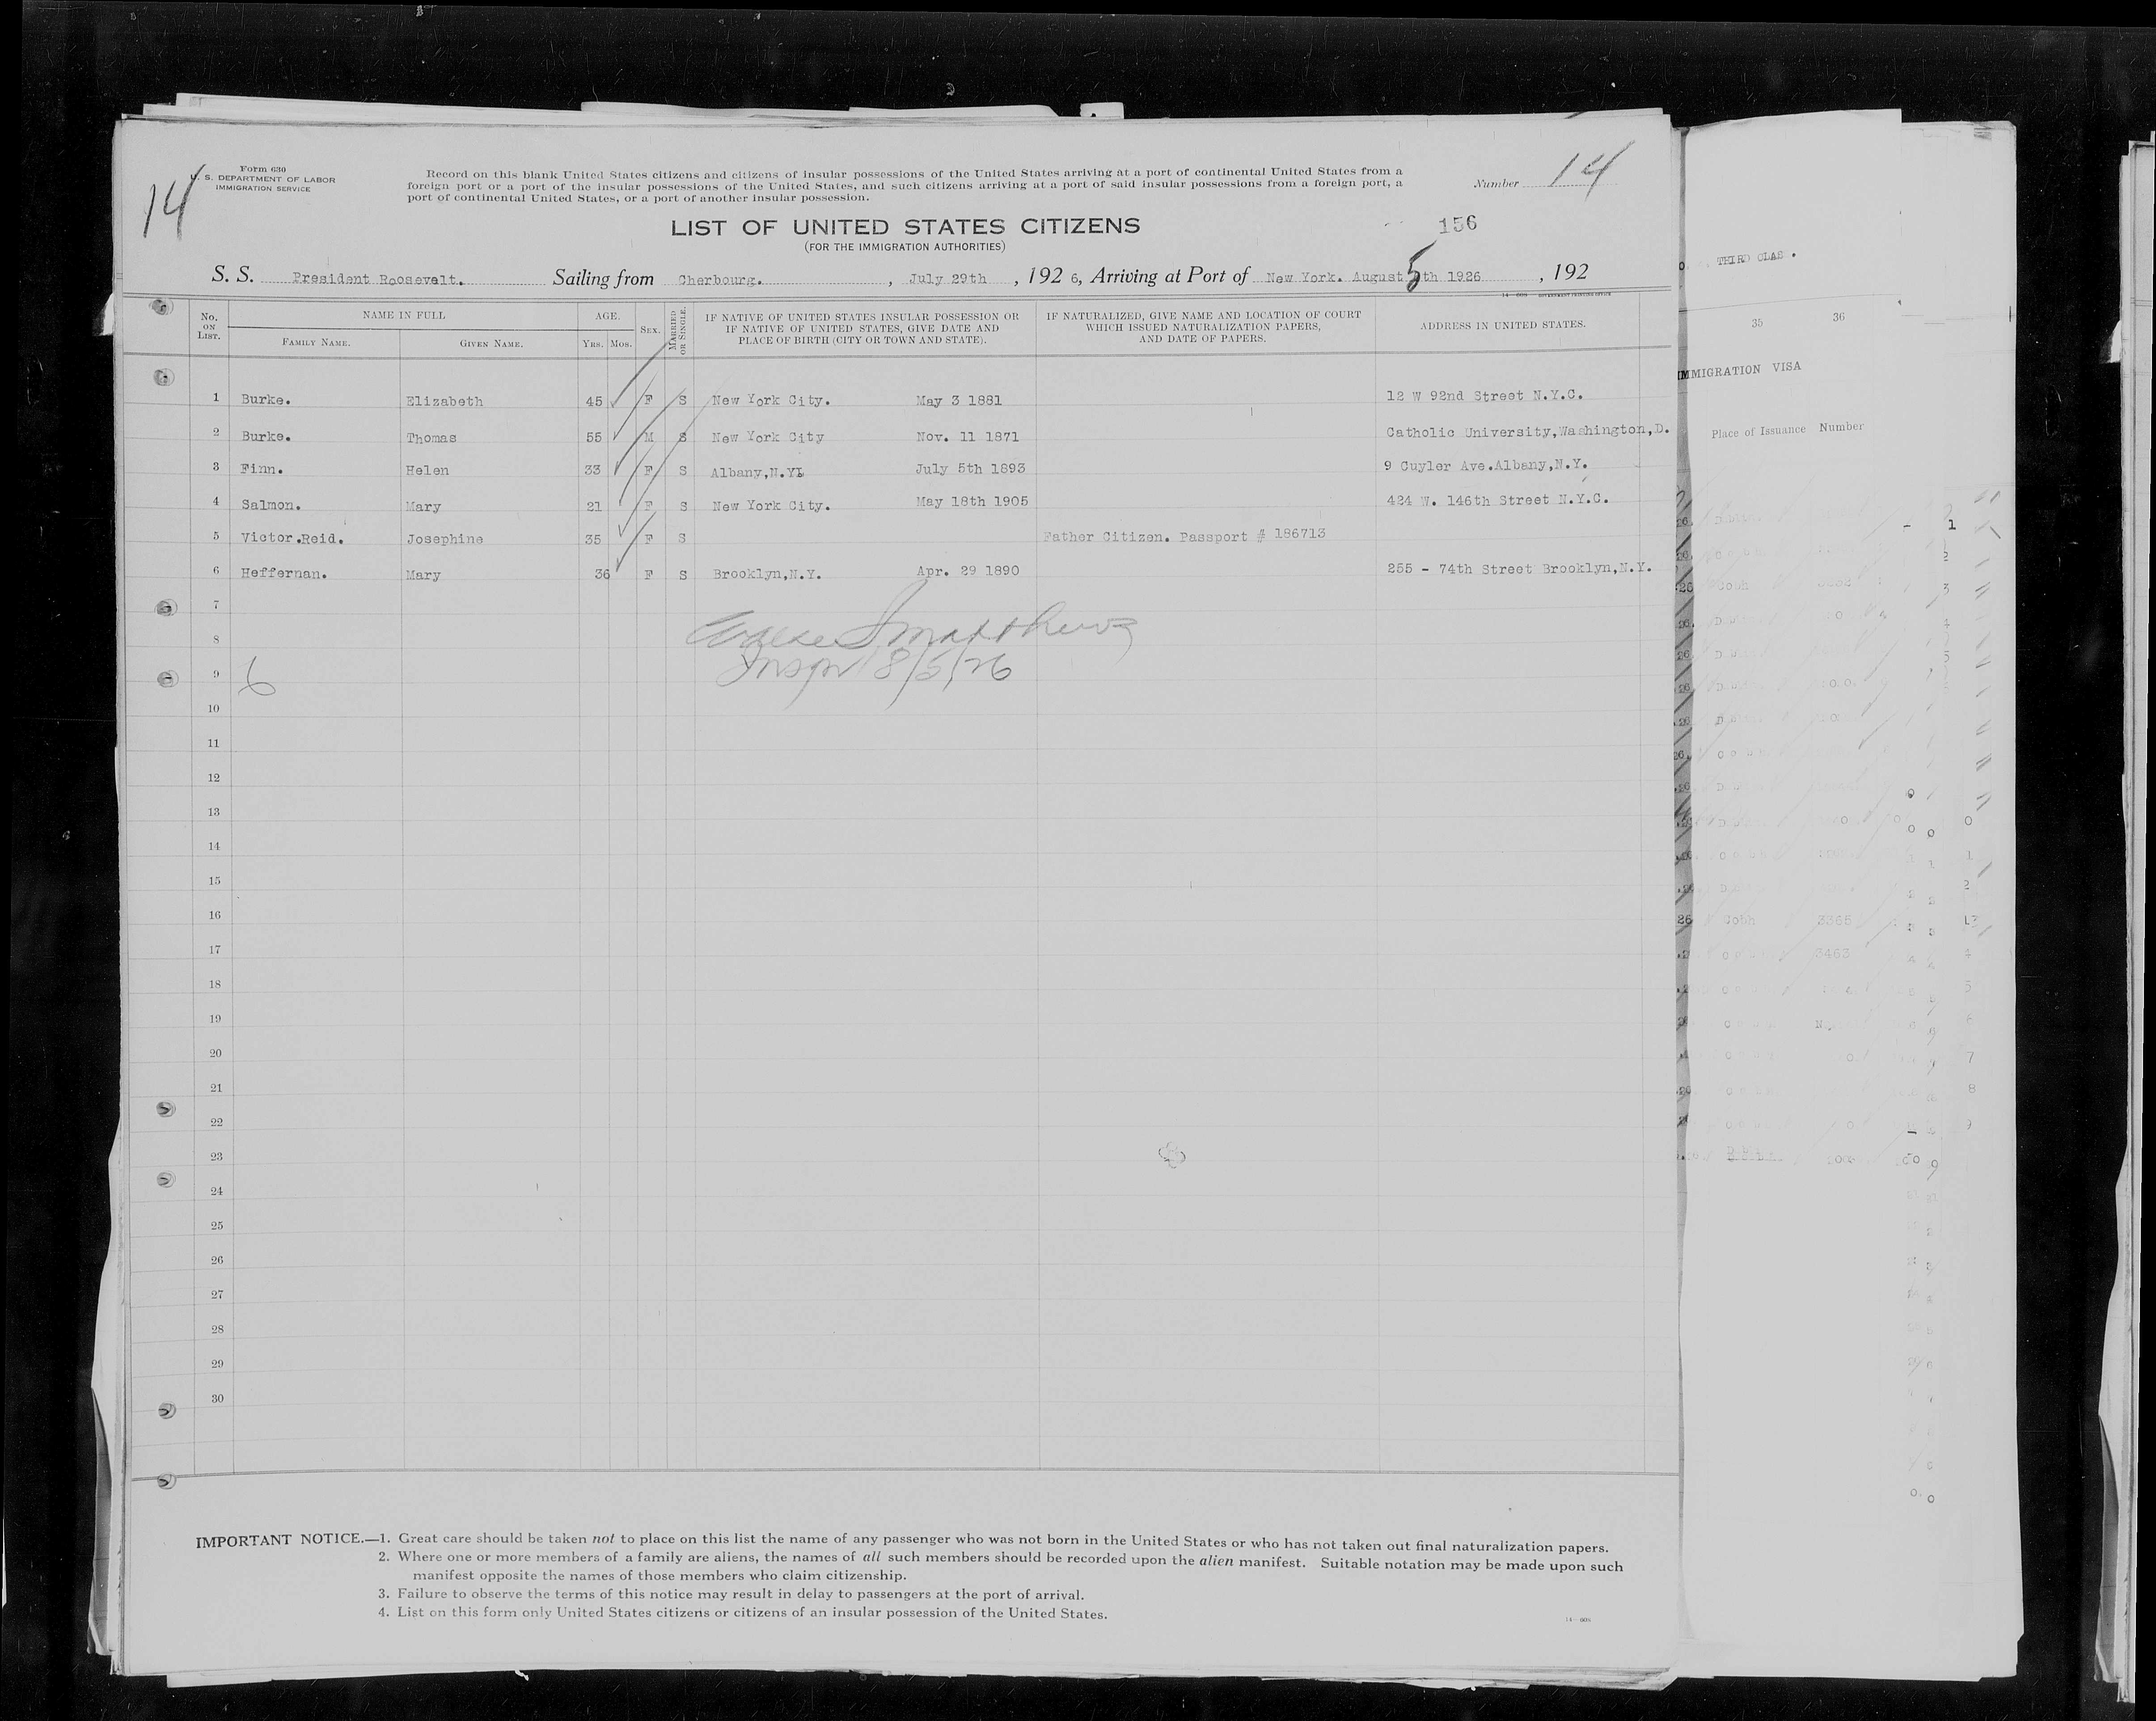 14
Form 630
U. S. DEPARTMENT OF LABOR
IMMIGRATION SERVICE
Record on this blank United States citizens and citizens of insular possessions of the United States arriving at a port of continental United States from a
foreign port or a port of the insular possessions of the United States, and such citizens arriving at a port of said insular possessions from a foreign port, a
port of continental United States, or a port of another insular possession.
Number 14
LIST OF UNITED STATES CITIZENS
(FOR THE IMMIGRATION AUTHORITIES)
156
S. S. President Roosevelt. Sailing from Cherbourg. , July 29th , 192 6, Arriving at Port of New York. August 5th 1926 , 192
No. ON LIST. NAME IN FULL AGE. SEX. MARRIED OR SINGLE. IF NATIVE OF UNITED STATES INSULAR POSSESSION OR IF NATIVE OF UNITED STATES, GIVE DATE AND PLACE OF BIRTH (CITY OR TOWN AND STATE). IF NATURALIZED, GIVE NAME AND LOCATION OF COURT WHICH ISSUED NATURALIZATION PAPERS, AND DATE OF PAPERS. ADDRESS IN UNITED STATES.
FAMILY NAME. GIVEN NAME. YRS. MOS.
1 Burke. Elizabeth 45 F S New York City. May 3 1881 12 W 92nd Street N.Y.C.
2 Burke. Thomas 55 M S New York City Nov. 11 1871 Catholic University,Washington,D.
3 Finn. Helen 33 F S Albany,N.Y. July 5th 1893 9 Cuyler Ave.Albany,N.Y.
4 Salmon. Mary 21 F S New York City. May 18th 1905 424 W. 146th Street N.Y.C.
5 Victor.Reid. Josephine 35 F S Father Citizen. Passport # 186713
6 Heffernan. Mary 36 F S Brooklyn,N.Y. Apr. 29 1890 255 - 74th Street Brooklyn,N.Y.
7
8 Matthews
9 6 Inspr 8/5/26
10
11
12
13
14
15
16
17
18
19
20
21
22
23
24
25
26
27
28
29
30
IMPORTANT NOTICE.—1. Great care should be taken not to place on this list the name of any passenger who was not born in the United States or who has not taken out final naturalization papers.
2. Where one or more members of a family are aliens, the names of all such members should be recorded upon the alien manifest. Suitable notation may be made upon such
manifest opposite the names of those members who claim citizenship.
3. Failure to observe the terms of this notice may result in delay to passengers at the port of arrival.
4. List on this form only United States citizens or citizens of an insular possession of the United States.
THIRD CLAS .
35 36
IMMIGRATION VISA
Place of Issuance Number
Cobh
Cobh 3365
3463